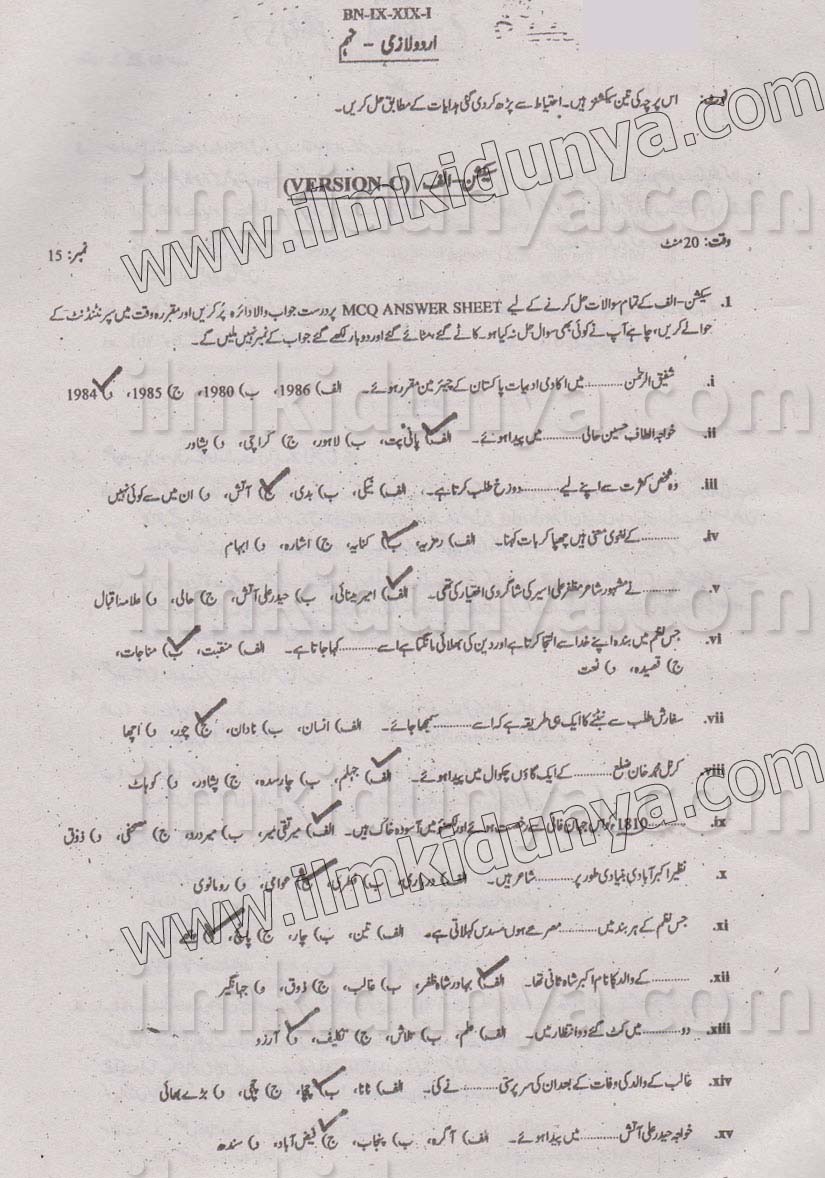 BN-IX-XIX-I
اردو لازمی - نہم
نوٹ: اس پرچہ کی تین سیکشنز ہیں۔ احتیاط سے پڑھ کر دی گئی ہدایات کے مطابق حل کریں۔
www.ilmkidunya.com
سیکشن-الف (VERSION-C)
وقت: 20 منٹ نمبر: 15
1. سیکشن-الف کے تمام سوالات حل کرنے کے لیے MCQ ANSWER SHEET پر درست جواب والا دائرہ پُر کریں اور مقررہ وقت میں سپرنٹنڈنٹ کے
حوالے کریں، چاہے آپ نے کوئی بھی سوال حل نہ کیا ہو۔ کاٹے گئے، مٹائے گئے اور دوبار لکھے گئے جواب کے نمبر نہیں ملیں گے۔
i. شفیق الرحمٰن ............ میں اکادمی ادبیات پاکستان کے چیئرمین مقرر ہوئے۔ الف) 1986، ب) 1980، ج) 1985، د) 1984
ii. خواجہ الطاف حسین حالی ............ میں پیدا ہوئے۔ الف) پانی پت، ب) لاہور، ج) کراچی، د) پشاور
iii. وہ شخص کثرت سے اپنے لیے ............ دوزخ طلب کرتا ہے۔ الف) نیکی، ب) بدی، ج) آتش، د) ان میں سے کوئی نہیں
iv. ............ کے لغوی معنی ہیں چھپا کر بات کہنا۔ الف) رمزیہ، ب) کنایہ، ج) اشارہ، د) ابہام
v. ............ نے مشہور شاعر مظفر علی اسیر کی شاگردی اختیار کی تھی۔ الف) امیر مینائی، ب) حیدر علی آتش، ج) حالی، د) علامہ اقبال
vi. جس نظم میں بندہ اپنے خدا سے التجا کرتا ہے اور دین کی بھلائی مانگتا ہے اسے ............ کہا جاتا ہے۔ الف) منقبت، ب) مناجات،
ج) قصیدہ، د) نعت
vii. سفارش طلب سے نمٹنے کا ایک ہی طریقہ ہے کہ اسے ............ سمجھا جائے۔ الف) انسان، ب) نادان، ج) چور، د) اچھا
viii. کرنل محمد خان ضلع ............ کے ایک گاؤں چکوال میں پیدا ہوئے۔ الف) جہلم، ب) چارسدہ، ج) پشاور، د) کوہاٹ
ix. ............ 1810ء اس جہان فانی سے رخصت ہوئے اور لکھنؤ میں آسودہ خاک ہیں۔ الف) میر تقی میر، ب) میر درد، ج) مصحفی، د) ذوق
x. نظیر اکبر آبادی بنیادی طور پر ............ شاعر ہیں۔ الف) درباری، ب) فطری، ج) عوامی، د) رومانوی
xi. جس نظم کے ہر بند میں ............ مصرعے ہوں مسدس کہلاتی ہے۔ الف) تین، ب) چار، ج) پانچ، د) چھے
xii. ............ کے والد کا نام اکبر شاہ ثانی تھا۔ الف) بہادر شاہ ظفر، ب) غالب، ج) ذوق، د) جہانگیر
xiii. دو ............ میں کٹ گئے دو انتظار میں۔ الف) علم، ب) تلاش، ج) تکلیف، د) آرزو
xiv. غالب کے والد کی وفات کے بعد ان کی سرپرستی ............ نے کی۔ الف) نانا، ب) چچا، ج) چچی، د) بڑے بھائی
xv. خواجہ حیدر علی آتش ............ میں پیدا ہوئے۔ الف) آگرہ، ب) پنجاب، ج) فیض آباد، د) سندھ